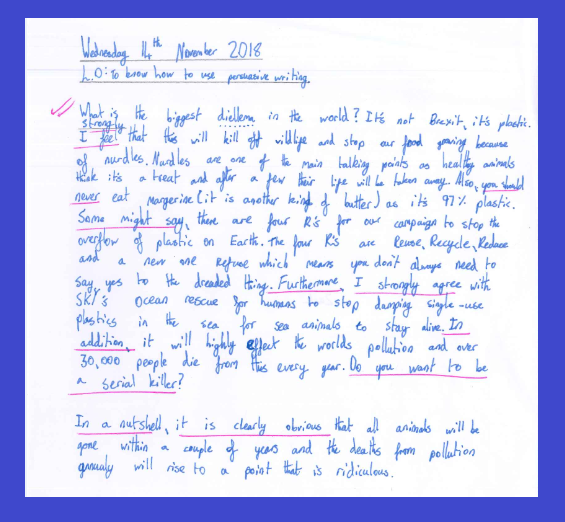 Wednesday 14th November 2018
L.O: To know how to use persuasive writing.
What is the biggest diellema in the world? It's not Brexit, it's plastic.
strongly
I feel that this will kill off wildlife and stop our food growing because
of nurdles. Nurdles are one of the main talking points as healthy animals
think it's a treat and after a few their life will be taken away. Also, you should
never eat margerine (it is another kind of butter) as it's 97% plastic.
Some might say, there are four R's for our campaign to stop the
overflow of plastic on Earth. The four R's are Reuse, Recycle, Reduce
and a new one Refuse which means you don't always need to
say, yes to the dreaded thing. Furthermore, I strongly agree with
SKY's Ocean rescue for humans to stop dumping single-use
plastics in the sea for sea animals to stay alive. In
addition, it will highly effect the worlds pollution and over
30,000 people die from this every year. Do you want to be
a serial killer?
In a nutshell, it is clearly obvious that all animals will be
gone within a couple of years and the deaths from pollution
gnnualy will rise to a point that is ridiculous.